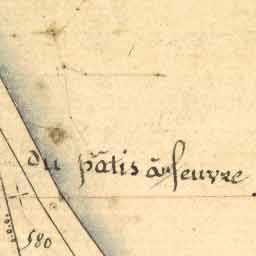 du pâtis à feuvre.
580